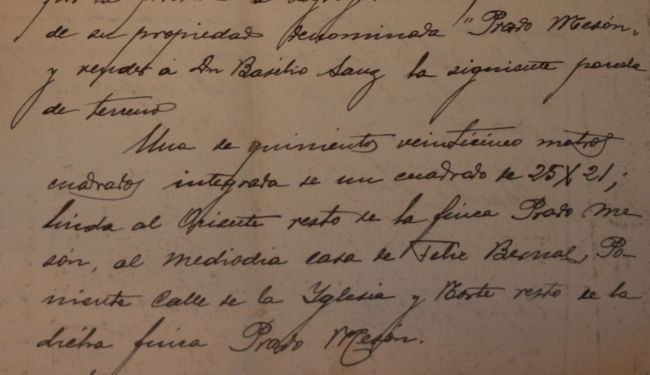 de su propiedad denominada "Prado Mesón"
y vender á Dn Basilio Sanz la siguiente parcela
de terreno
Una de quinientos veinticinco metros
cuadrados integrada de un cuadrado de 25X21;
linda al Oriente resto de la finca Prado Me
són, al mediodia casa de Felix Bernal, Po-
niente Calle de la Yglesia y Norte resto de la
dicha finca Prado Mesón.